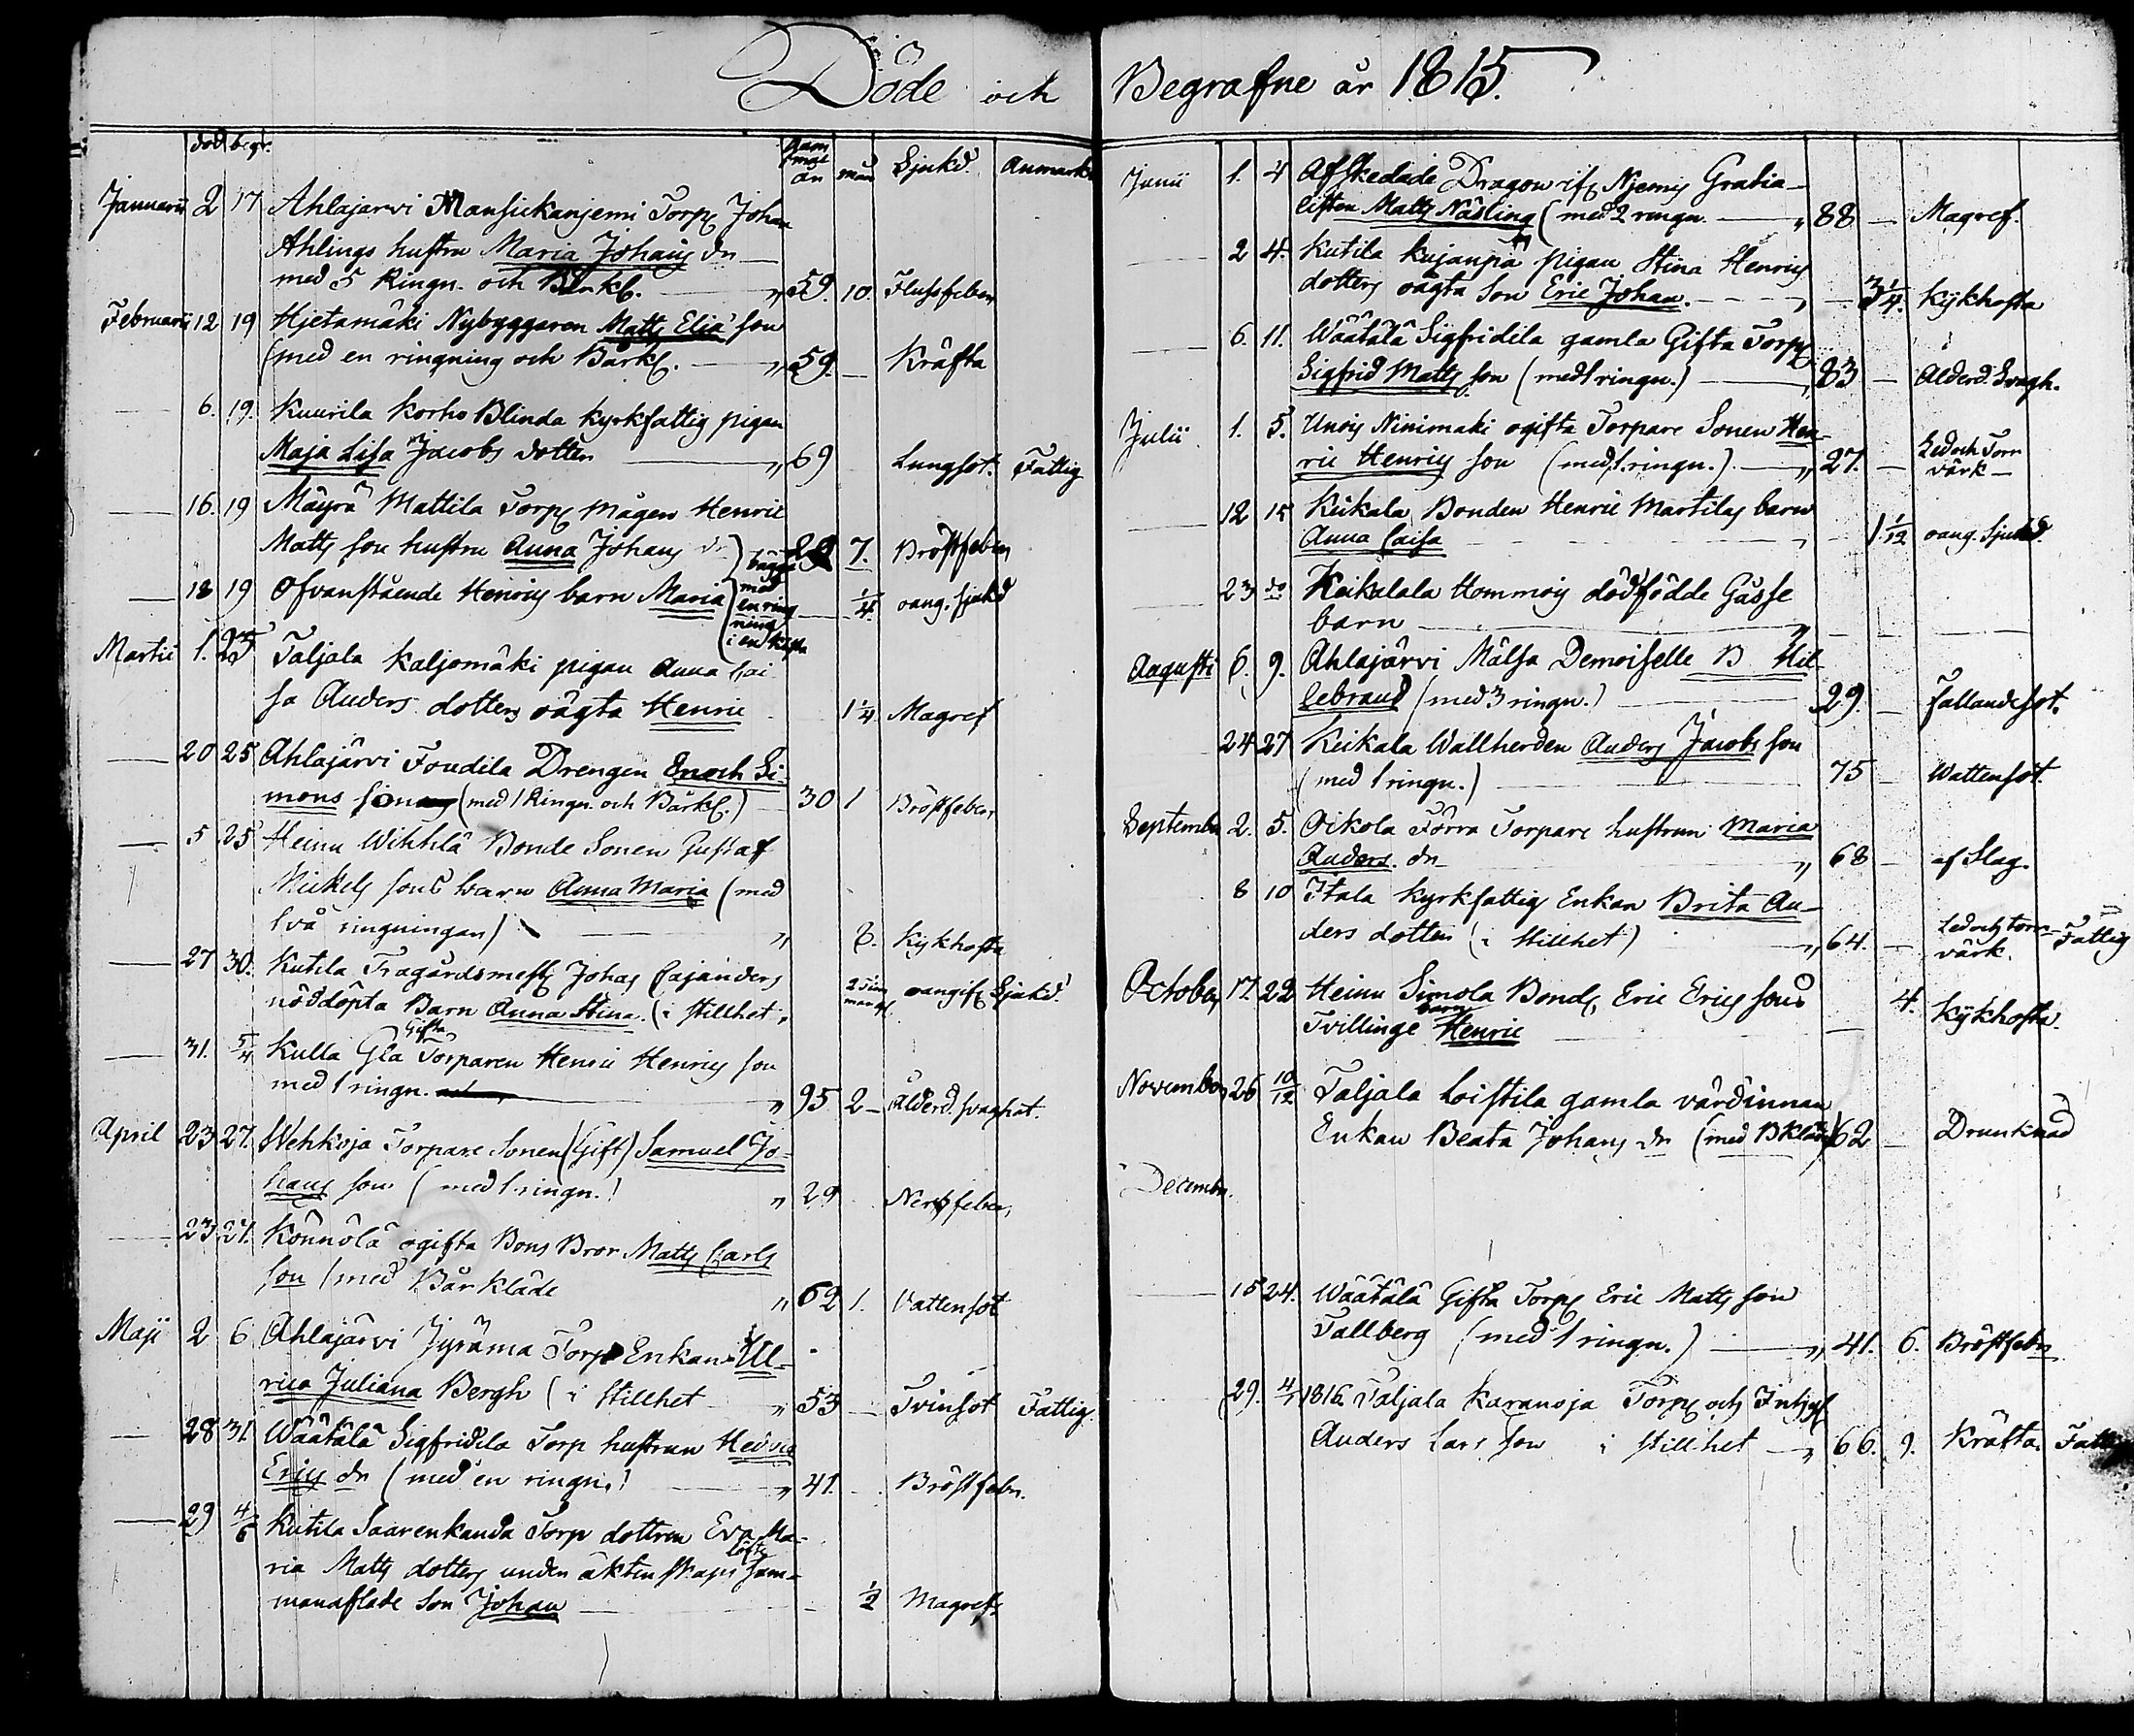 Döde och Begrafne år 1815.
död begr. år mån Sjukd. Anmärkn
Januarii 2 17 Ahlajarvi Mansickanjemi Torp Johan
Ahlings hustru Maria Johans dr
med 5 Ringn. och Bårkl. 59. 10. Flussfeber
Februarii 12 19 Hjetamäki Nybyggaren Matts Elia son
(med en ringning och Bårkl. 59. Kräfta
6. 19. Kuurila Korho Blinda kyrkfattig pigan
Maja Lisa Jacobs dotter 69 Lungsot. Fattig
16. 19 Mäyrä Mattila Torp mågen Henric
Matts son hustru Anna Johans dr 29 7. Bröstfeber
bägge
18 19 Ofvanstående Henrics barn Maria 1/4. oang. sjukd
med
en ring
ning
i en kista
Martii 1. 25 Taljala Kaljomäki pigan Anna Cai
sa Anders dotters oägta Henric 1 1/4 Magref
20 25 Ahlajärvi Foudila Drengen Enoch Si-
mons son (med 1 Ringn. och Bårkl.) 30 1 Bröstfeber
5 25 Heinu Wihhlä Bonde Sonen Gustaf
Mickels sons barn Anna Maria (med
två ringningar) 8. Kykhosta
27 30. Kutila Tragårdsmest Johas Cajanders
nöddöpta Barn Anna Stina. (i stillhet 2 Tim oangif Sjukd.
31. 5/4 Kulla Gla Gifta Torparen Henric Henrics son
med 1 ringn. 95 2 Ålderd. svaghet.
April 23 27. Wehkoja Torpare Sonen (Gift) Samuel Jo-
hans son (med 1 ringn.) 29 Nervfeber
23 27. Könnölä ogifta Bons Bror Matts Carls
son (med Bår kläde 62 1. Vattensot
Maji 2 6 Ahlajärvi Jyräma Torp Enkan Ul-
rica Juliana Bergh (i stillhet 53 Tvinsot Fattig.
28 31 Wäätälä Sigfridila Torp hustrun Hedvig
Erics dr (med en ringn.) 41. Bröstfebr.
29 4/6 Kutila Saarenkanda Torp dottren Eva Ma-
ria Matts dotters under äktenskaps löfte sam-
manaflade son Johan 1/2 Magref
Junii 1. 4 Afskedade Dragon Njemis Gratia-
listen Matts Näsling (med 2 ringn. 88 Magref.
2 4. Kutila Kujanpä pigan Stina Henrics
dotters oägta Son Eric Johan. 3 1/4. Kykhosta
6. 11. Wäätälä Sigfridila gamla Gifta Torp
Sigfrid Matts son (med 1 ringn.) 83 Ålderd. Svagh.
Julii 1. 5. Unois Ninimaki ogifta Torpare Sonen Hen-
ric Henrics son (med 1. ringn.) 27. Led och Torr
värk
12 15 Keikala Bonden Henric Martilas barn
Anna Caisa 1 1/12 oang. Sjukd.
23 do Keikalala Hommois dödfödde Gåsse
barn
Augusti 6. 9. Ahlajärvi Mälsa Demoiselle B Hil-
lebrand (med 3 ringn.) 29. Fallandesot.
24 27 Keikala Wallherden Anders Jacobs son
(med 1 ringn.) 75 Wattensot.
September 2. 5. Oikola Förra Torpare hustrun Maria
Anders dr 68 af Slag.
8 10 Itala kyrkfattig Enkan Brita An-
ders dotter (i stillhet) 64. Led och torr-
värk. Fattig
October 17. 22 Heinu Simola Bond. Eric Erics sons
Tvillinge barn Henric 4. Kykhosta.
November 26 10/12 Taljala Loistila gamla värdinnan
Enkan Beata Johans dr (med Bklä) 62 Drunknad
Decembr.
15 24. Wäätälä Gifta Torp Eric Matts son
Tallberg (med 1 ringn.) 41. 6. Bröstfebr
29. 4/1 1816 Taljala Karanoja Torp och Inhys
Anders Lars son i stillhet 66. 9. Kräfta. Fattig